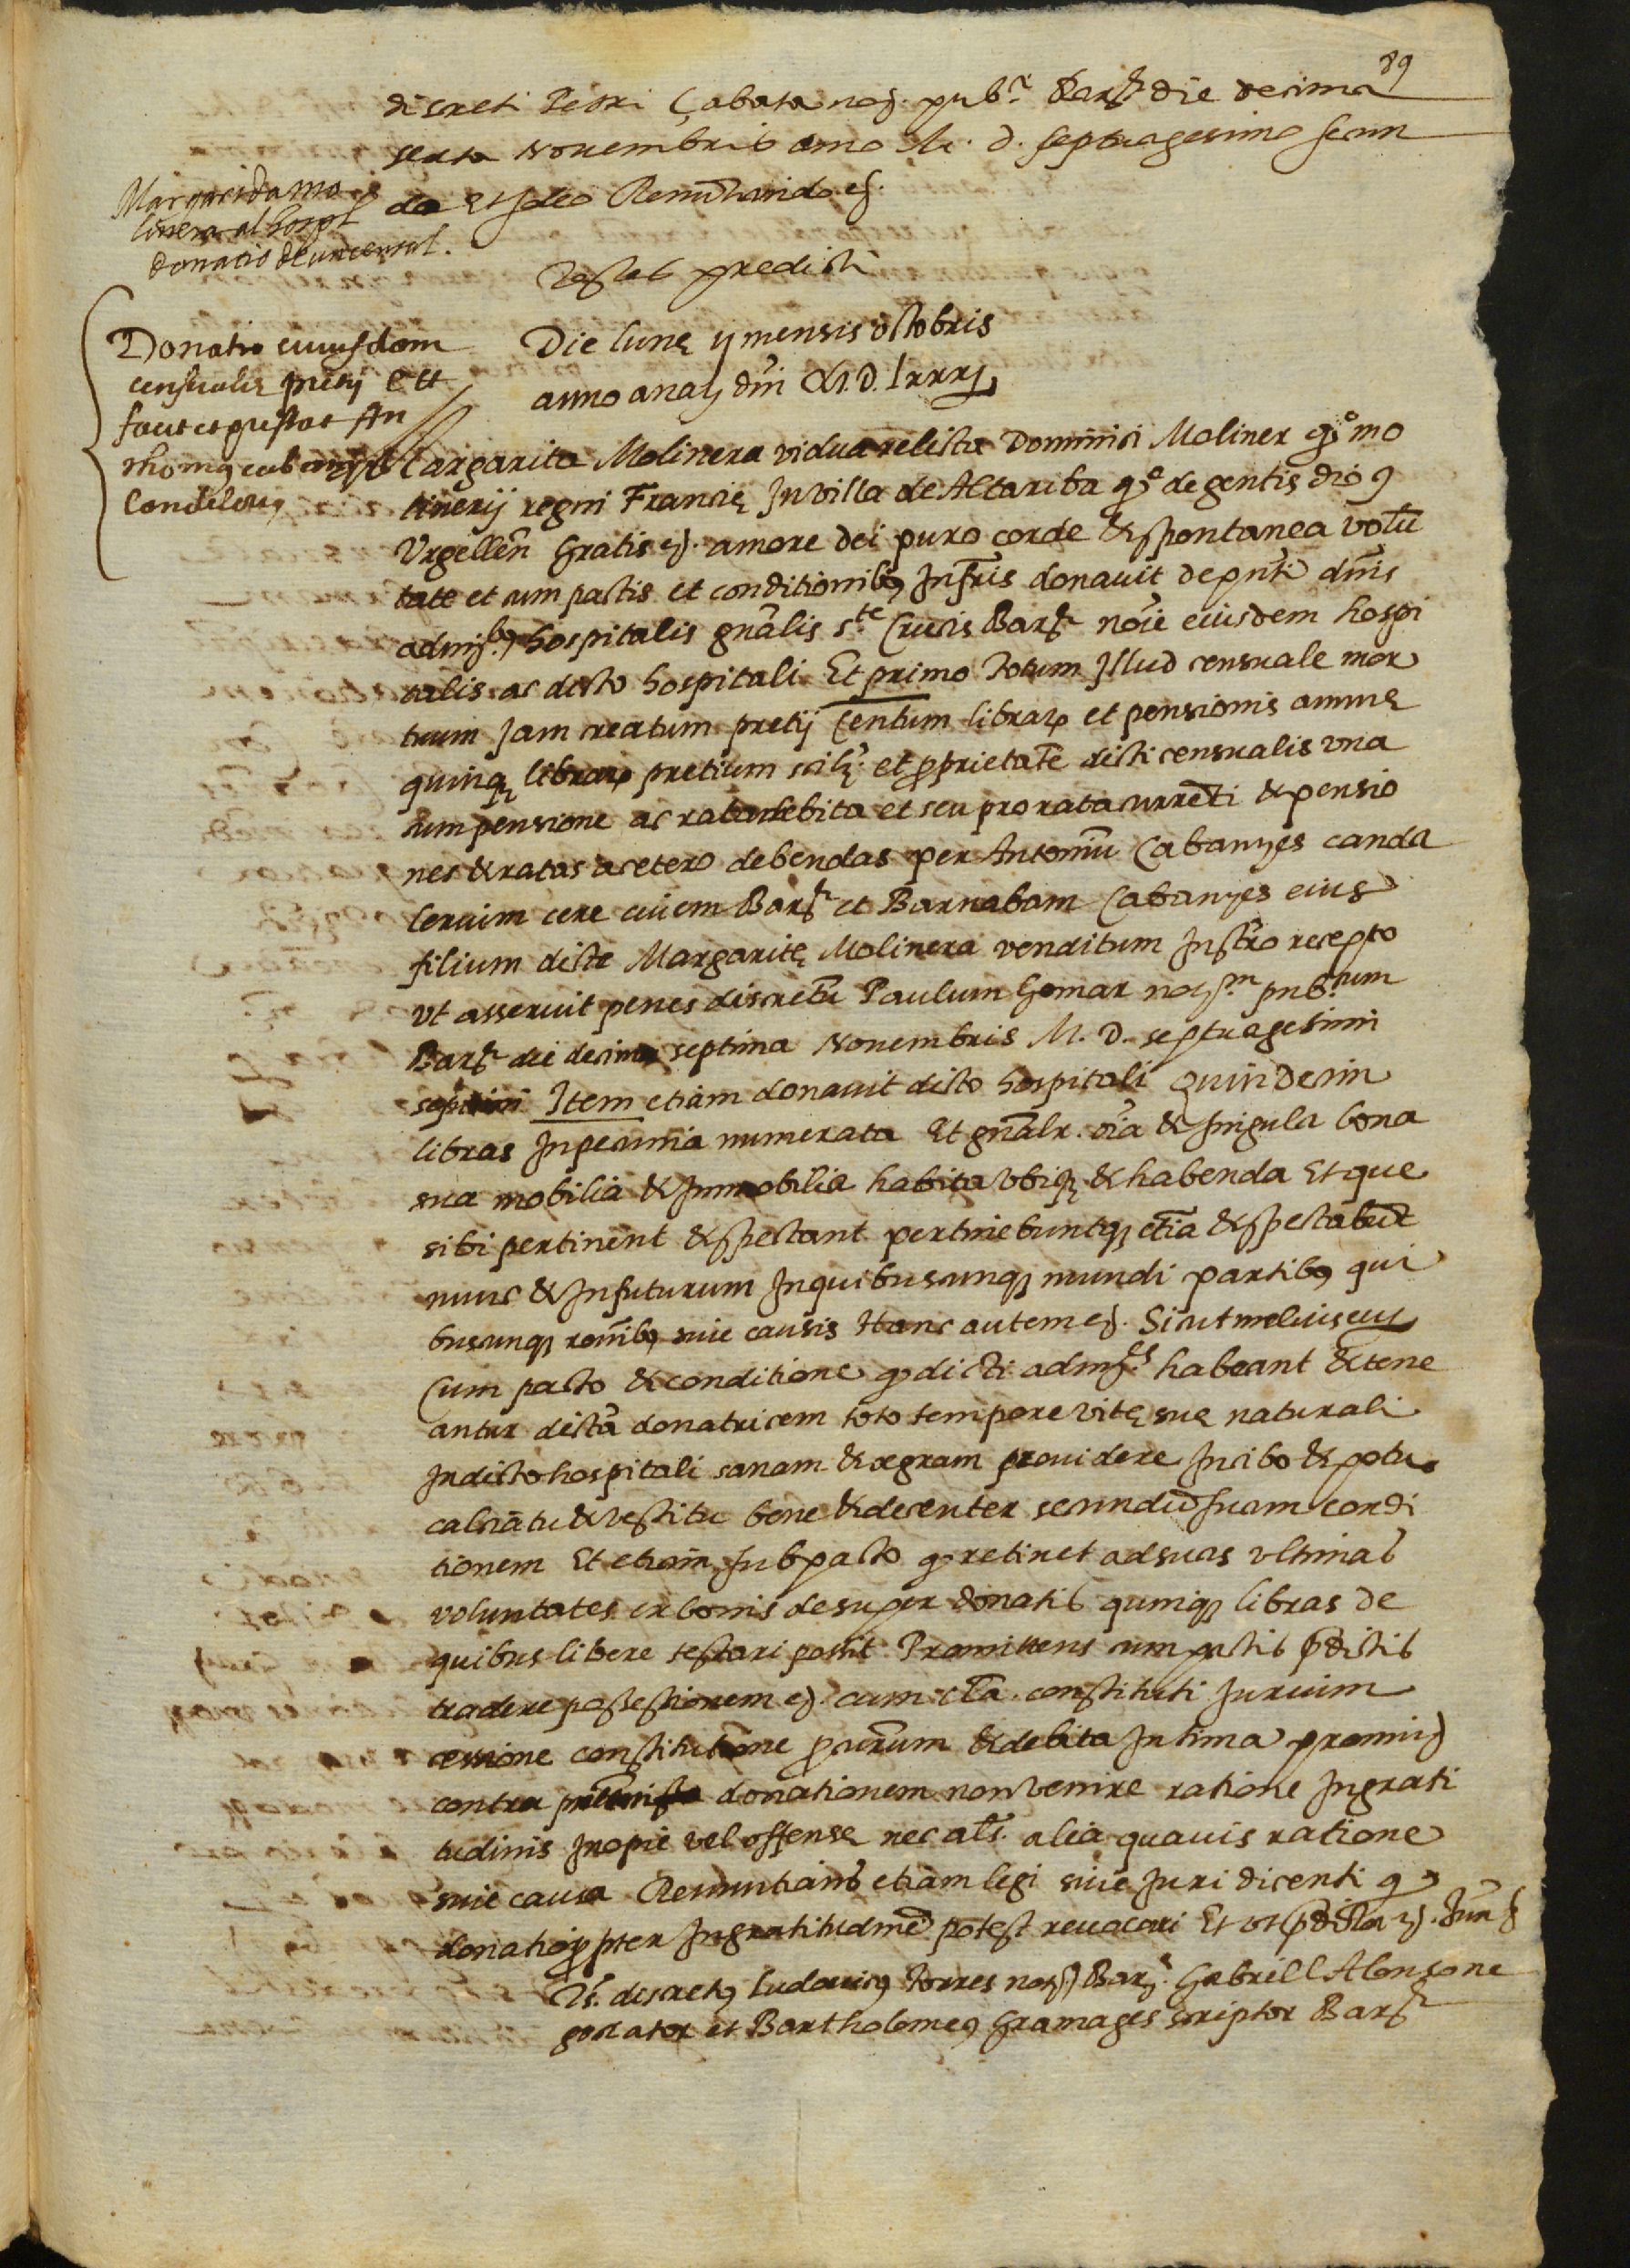 89
discreti Petri Çabata noṭ. pub.ci Barñe die decima
sexta Novembris anno M. d. septuagesimo secun
do Et ideo Renuntiando eṭ.
Testes predicti
Margarida mo
linera al hospl
donatio de un censal.
Die lunę ij mensis octobris
anno a naty dñi M.D. lxxxj
Donatio cuiusdam
censualis pretij C ll
facit et prestat An
thonius cabanyes
Candelerius
Margarita Molinera vidua relicta Dominici Moliner qº mo
linerij regni Francię In villa de Altariba qº degentis dioc
Urgelleñ Gratis eṭ. amore dei puro corde & spontanea volũ
tate et cum pactis et conditionibꝰ Infrĩs donavit de pñti dñis
admĩbꝰ hospitalis gñalis s.te Crucis Barñe nõie eiusdem hospi
talis ac dicto hospitali Et primo Totum Illud censuale mor
tuum Jam creatum pretij Centum librarꝝ et pensionis annuę
quinqꝫ librarꝝ pretium scilꝫ. et proprietatẽ dicti censualis una
cum pensione ac rata debita et seu pro rata currẽti & pensio
nes & ratas a cetero debendas per Antoniũ Cabanyes canda
lerium cere civem Barñe et Barnabam Cabanyes eius
filium dicte Margaritę Molinera venditum Instro recepto
ut asseruit penes discretũ Paulum Gomar notm pub.cum
Barñe die decima septima Novembris M. D. septuagesimi
septimi Item etiam donavit dicto hospitali quindecim
libras In pecunia numerata Et gñalr. oĩa & singula bona
sua mobilia & Immobilia habita ubiqꝫ & habenda Et que
sibi pertinent & spectant pertinebuntqꝫ etiã & spectabũt
nunc & In futurum In quibuscunqꝫ mundi partibꝰ qui
buscunqꝫ rõnibꝰ sive causis Hanc autem eṭ. Sicut melius eṭ
Cum pacto & conditione qꝫ dicti admres habeant & tene
antur dictã donatricem toto tempore vitę suę naturali
In dicto hospitali sanam & ægram providere In cibo & potu
calciatu & vestitu bene & decenter secundũ suam condi
tionem Et etiam sub pacto qꝫ retinet ad suas ultimas
voluntates ex bonis desuper donatis quinqꝫ libras de
quibus libere testari possit Promittens cum pactis p̃dictis
tradere possessionem eṭ. cum cla. constituti Jurium
cessione constitutione procurum & debita Intima promiṭ
contra donationem non venire ratione Ingrati
tudinis Inopie vel offense nec als. alia quavis ratione
sive causa Renuntians etiam legi sive Juri dicenti qꝫ
donatio propter Ingratitudinẽ potest revocari Et ut p̃dicta eṭ. Jurṭ
Ts. discretꝰ Ludovicꝰ Torres notꝰ Barñe. Gabriell Alonso ne
gociator et Bartholomeꝰ Gramages scriptor Barñe